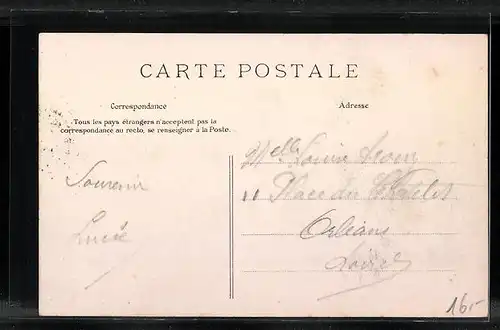 CARTE POSTALE
Correspondance
Adresse
Tous les pays étrangers n'acceptent pas la
correspondance au recto, se renseigner à la Poste.
Souvenir
M elle
11 Place du
Orléans
Loiret
16-